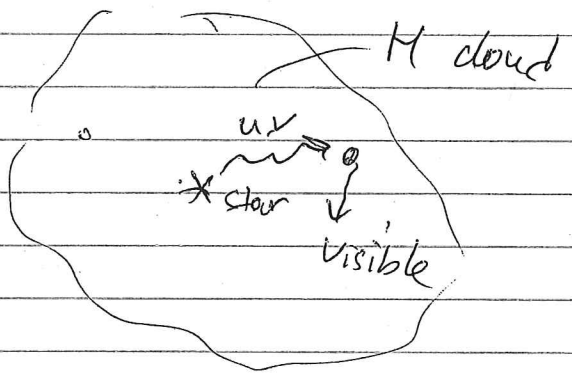 H cloud
uv
star
visible